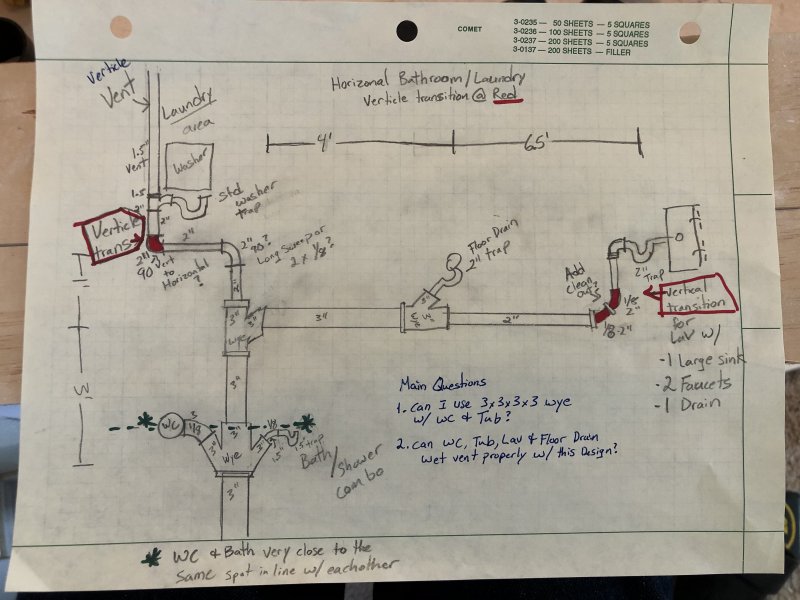 COMET
3-0235 — 50 SHEETS — 5 SQUARES
3-0236 — 100 SHEETS — 5 SQUARES
3-0237 — 200 SHEETS — 5 SQUARES
3-0137 — 200 SHEETS — FILLER
Horizonal Bathroom/Laundry
Verticle transition @ Red
Verticle
Vent
Laundry
area
4'
6.5'
1.5"
Vent
Washer
1.5
2"
2"
Std
washer
trap
Verticle
trans
2"
90
Vert
to
Horizontal
?
2"
2"
90?
Long Sweep or
2 x 1/8?
2"
Floor Drain
2" trap
Add
Clean
out?
2"
Trap
1/8
2"
1/8-2"
Vertical
transition
for
Lav w/
-1 Large sink
-2 Faucets
-1 Drain
3"
3"
wye
3"
3"
2"
1'
3'
3"
WC
3
1/8
3"
3"
3"
wye
1/8
1.5"
1.5" trap
Bath/
Shower
combo
3"
Main Questions
1. can I use 3x3x3x3 wye
w/ WC & Tub?
2. can WC, Tub, Lav & Floor Drain
wet vent properly w/ this Design?
* WC & Bath very close to the
same spot in line w/ eachother